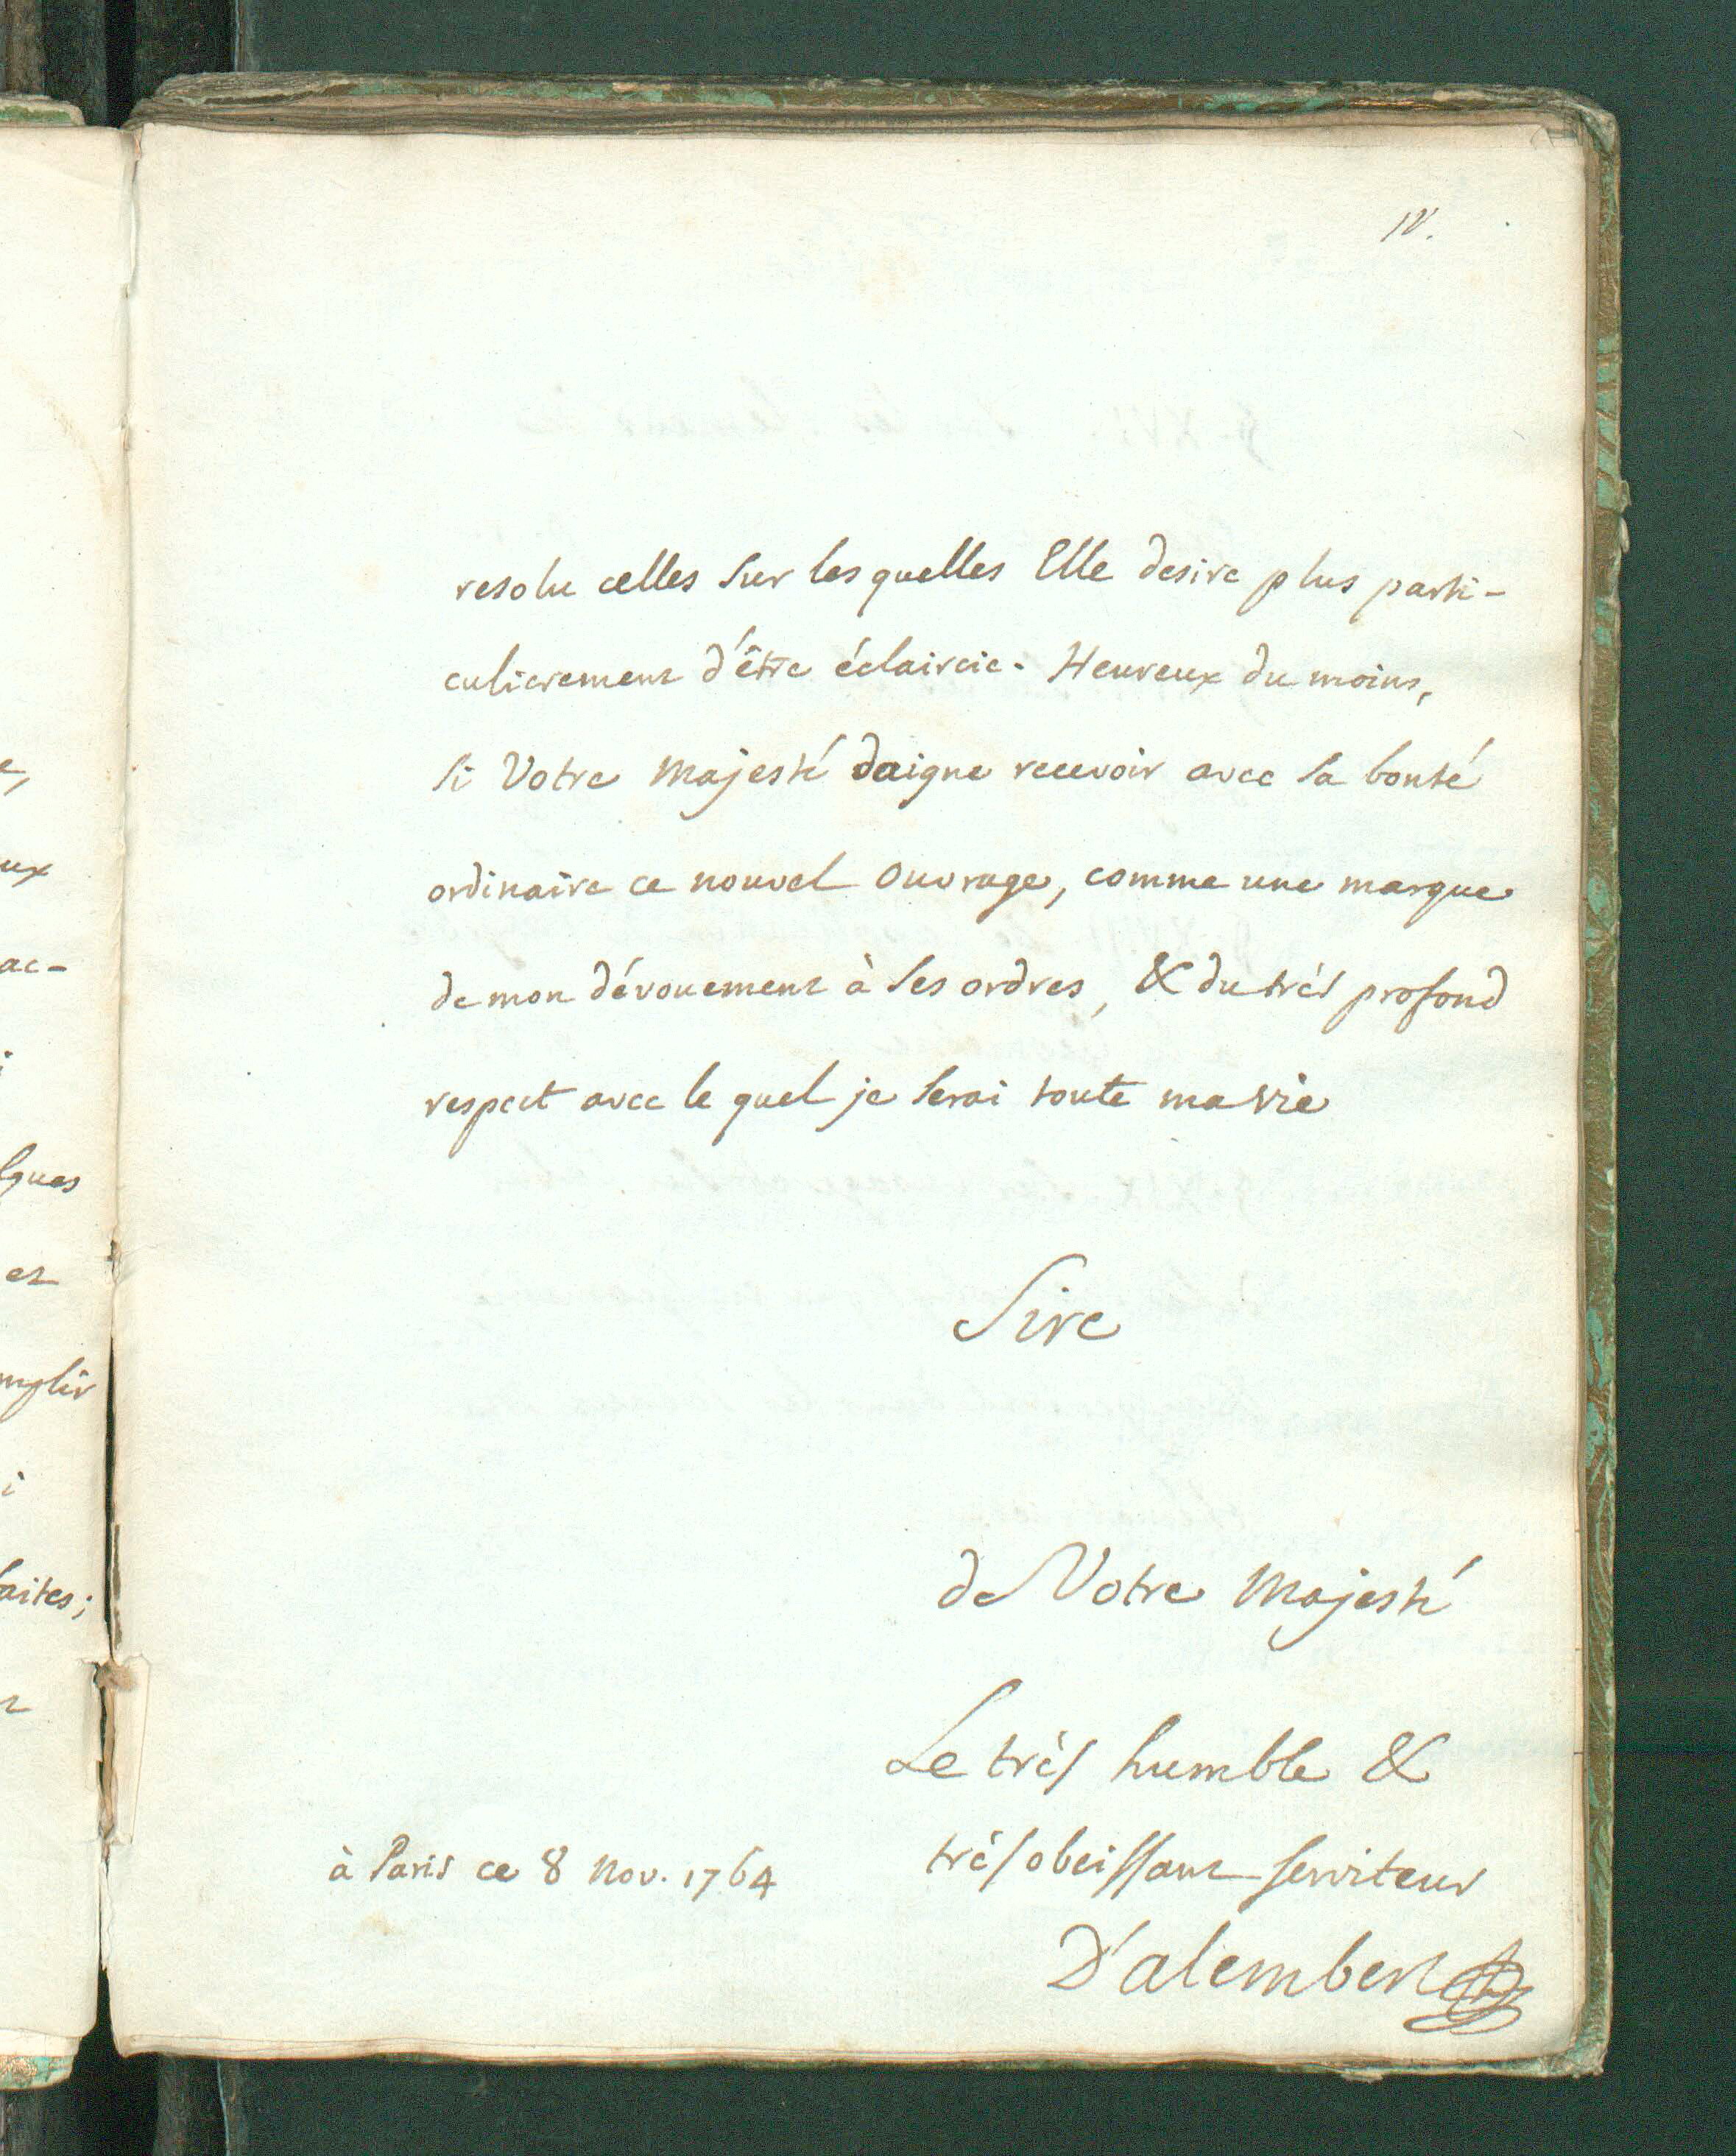 IV.
resolu celles sur lesquelles Elle desire plus parti-
culierement d'être éclaircie. Heureux du moins,
si Votre Majesté daigne recevoir avec sa bonté
ordinaire ce nouvel Ouvrage, comme une marque
de mon dévouement à ses ordres, & du très profond
respect avec le quel je serai toute ma vie
Sire
de Votre Majesté
Le très humble &
très obeissant serviteur
à Paris ce 8 Nov. 1764
D'alembert
e,
ux
ac-
i
lques
et
mplir
i
faites;
t